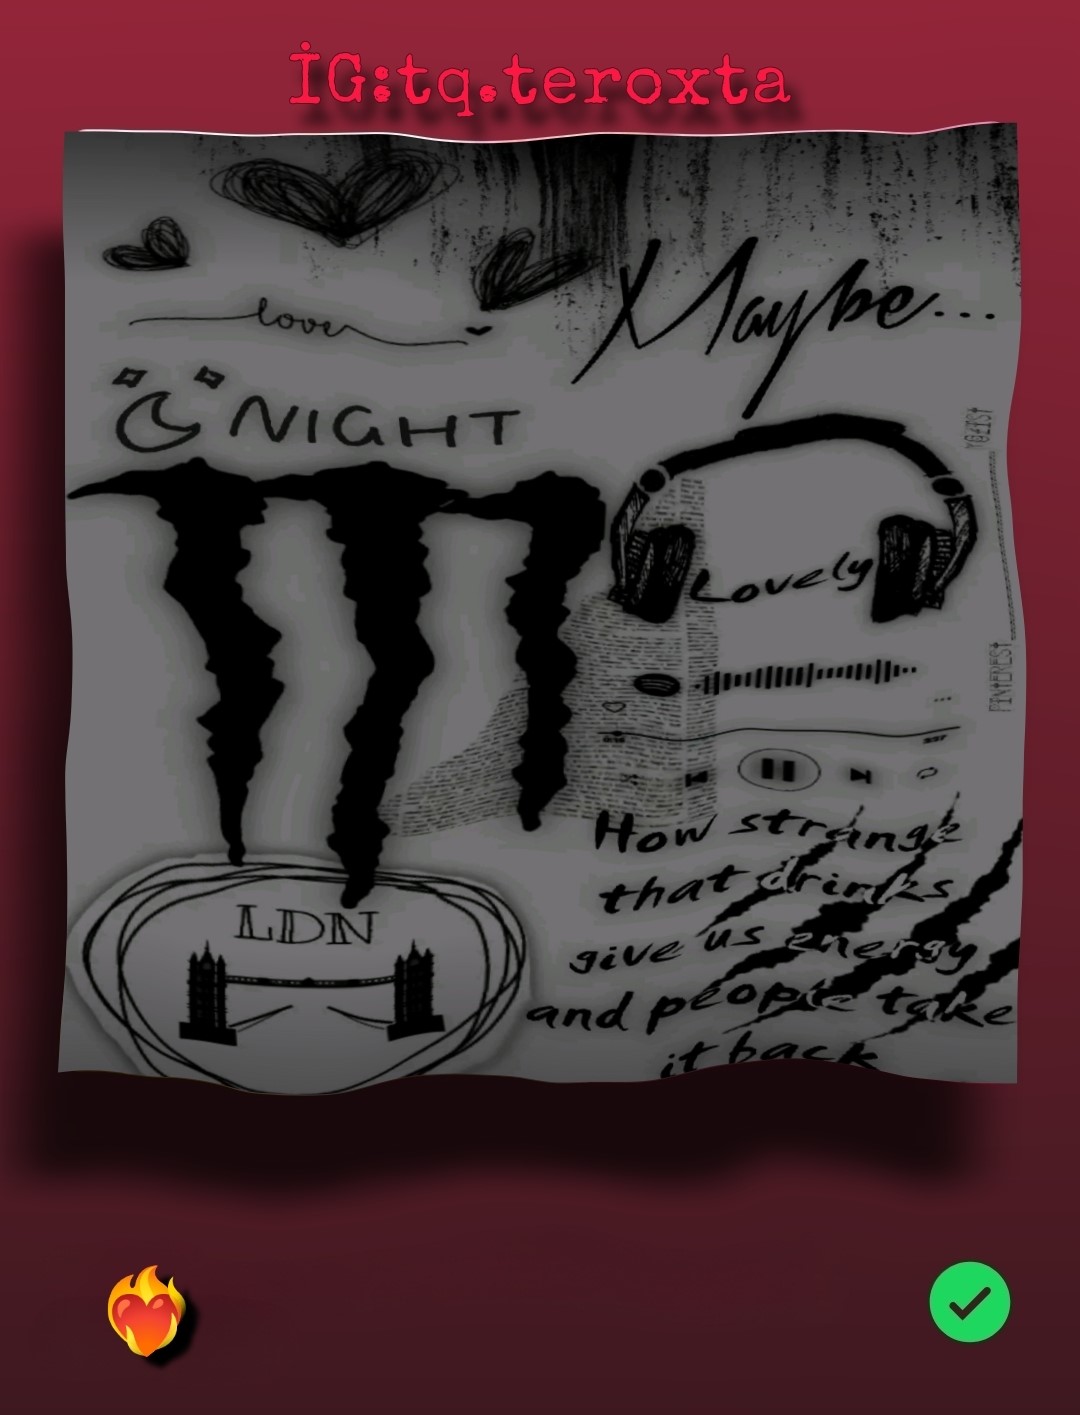 İG:tq.teroxta
love
Maybe...
NIGHT
Lovely
PINTEREST
How strange
that drinks
give us energy
and people take
it back
LDN